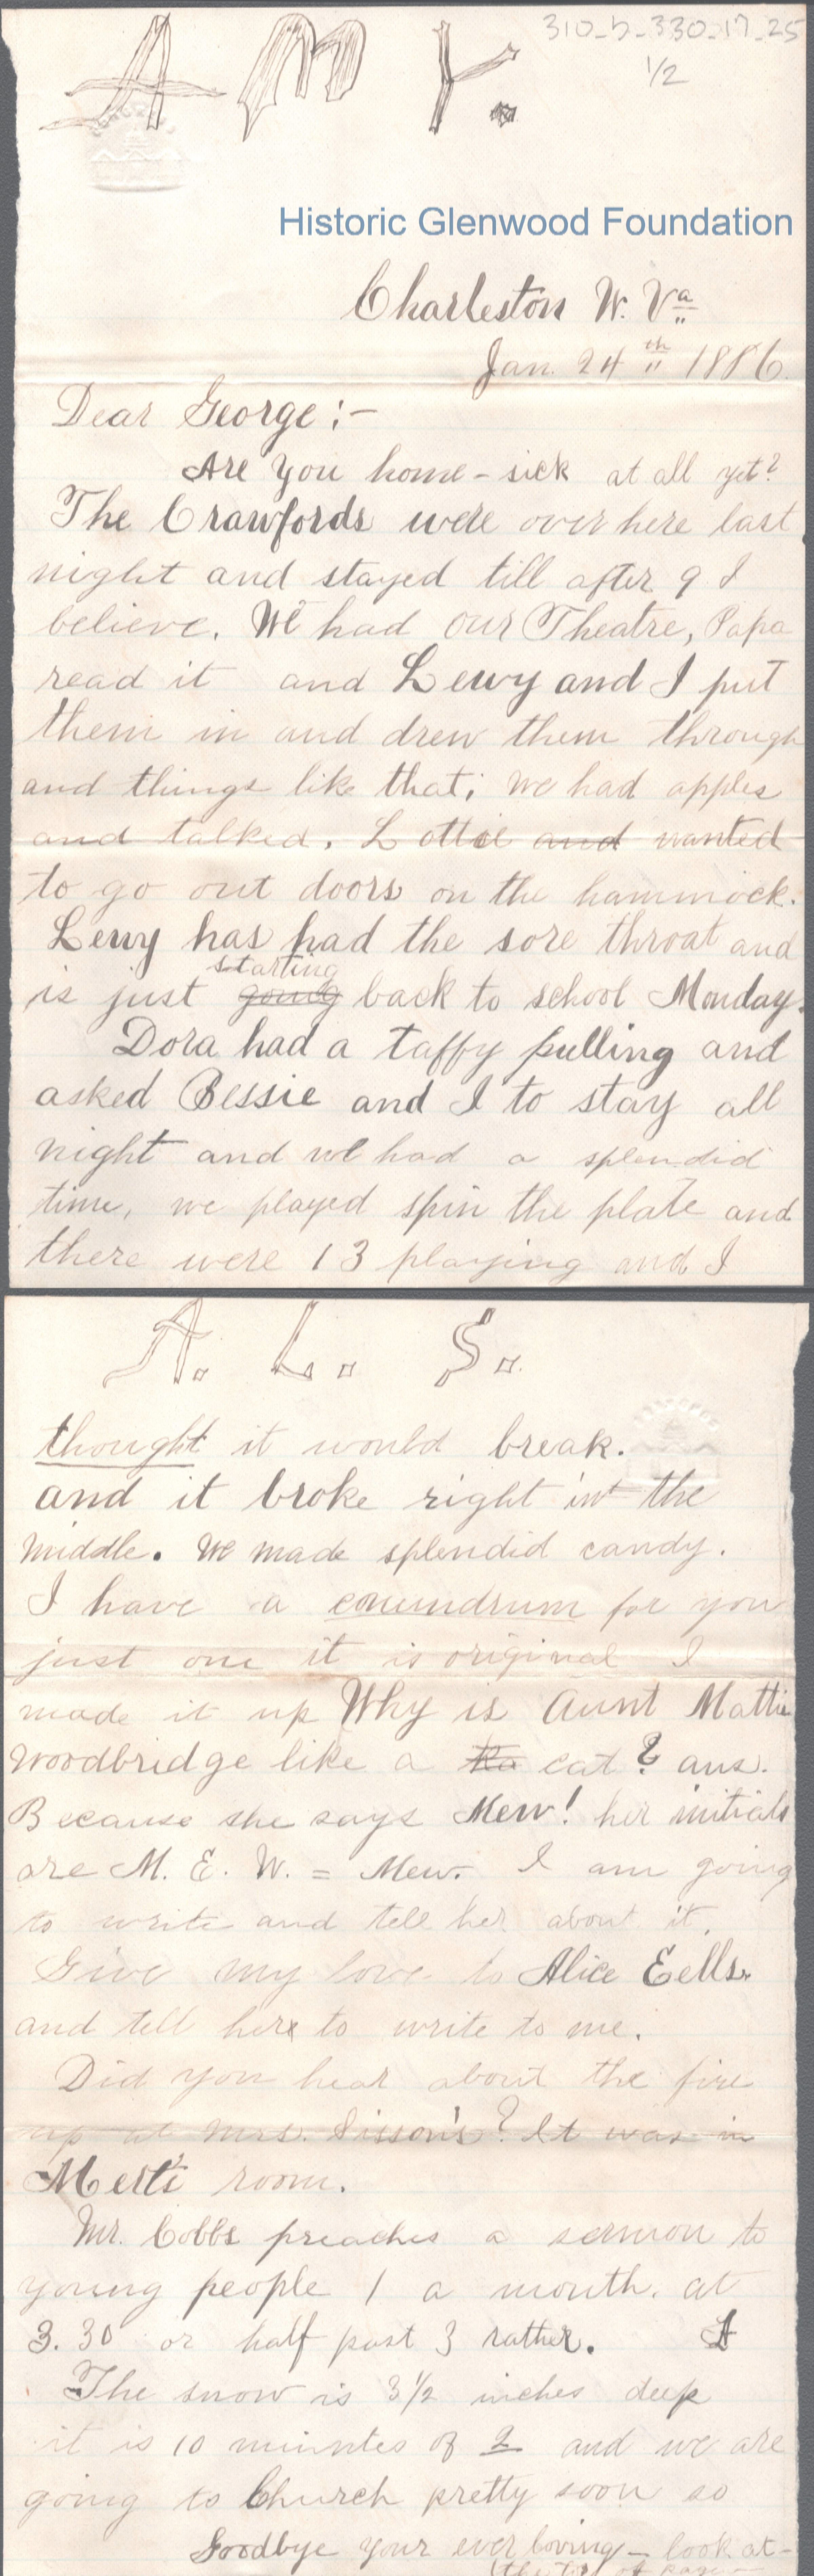 310-b-330-17-25
1/2
AMY.
Historic Glenwood Foundation
Charleston W. Va
Jan. 24th 1886.
Dear George:-
Are you home-sick at all yet?
The Crawfords were over here last
night and stayed till after 9 I
believe. We had our Theatre, Papa
read it and Lewy and I put
them in and drew them through
and things like that; we had apples
and talked. Lottie and wanted
to go out doors on the hammock.
Lewy has had the sore throat and
starting
is just going back to school Monday.
Dora had a taffy pulling and
asked Bessie and I to stay all
night and we had a splendid
time, we played spin the plate and
there were 13 playing and I
A. L. S.
thought it would break.
and it broke right in the
middle. We made splendid candy.
I have a conundrum for you
just one it is original I
made it up Why is Aunt Mattie
Woodbridge like a cat? ans.
Because she says Mew! her initials
are M. E. W. = Mew. I am going
to write and tell her about it.
Give my love to Alice Eells.
and tell her to write to me.
Did you hear about the fire
up at Mrs. Sisson's? It was in
Mert's room.
Mr. Cobbs preaches a sermon to
young people 1 a month. at
3.30 or half past 3 rather.
The snow is 3 1/2 inches deep
it is 10 minutes of 2 and we are
going to Church pretty soon so
Goodbye your ever loving - look at-
(the top of page